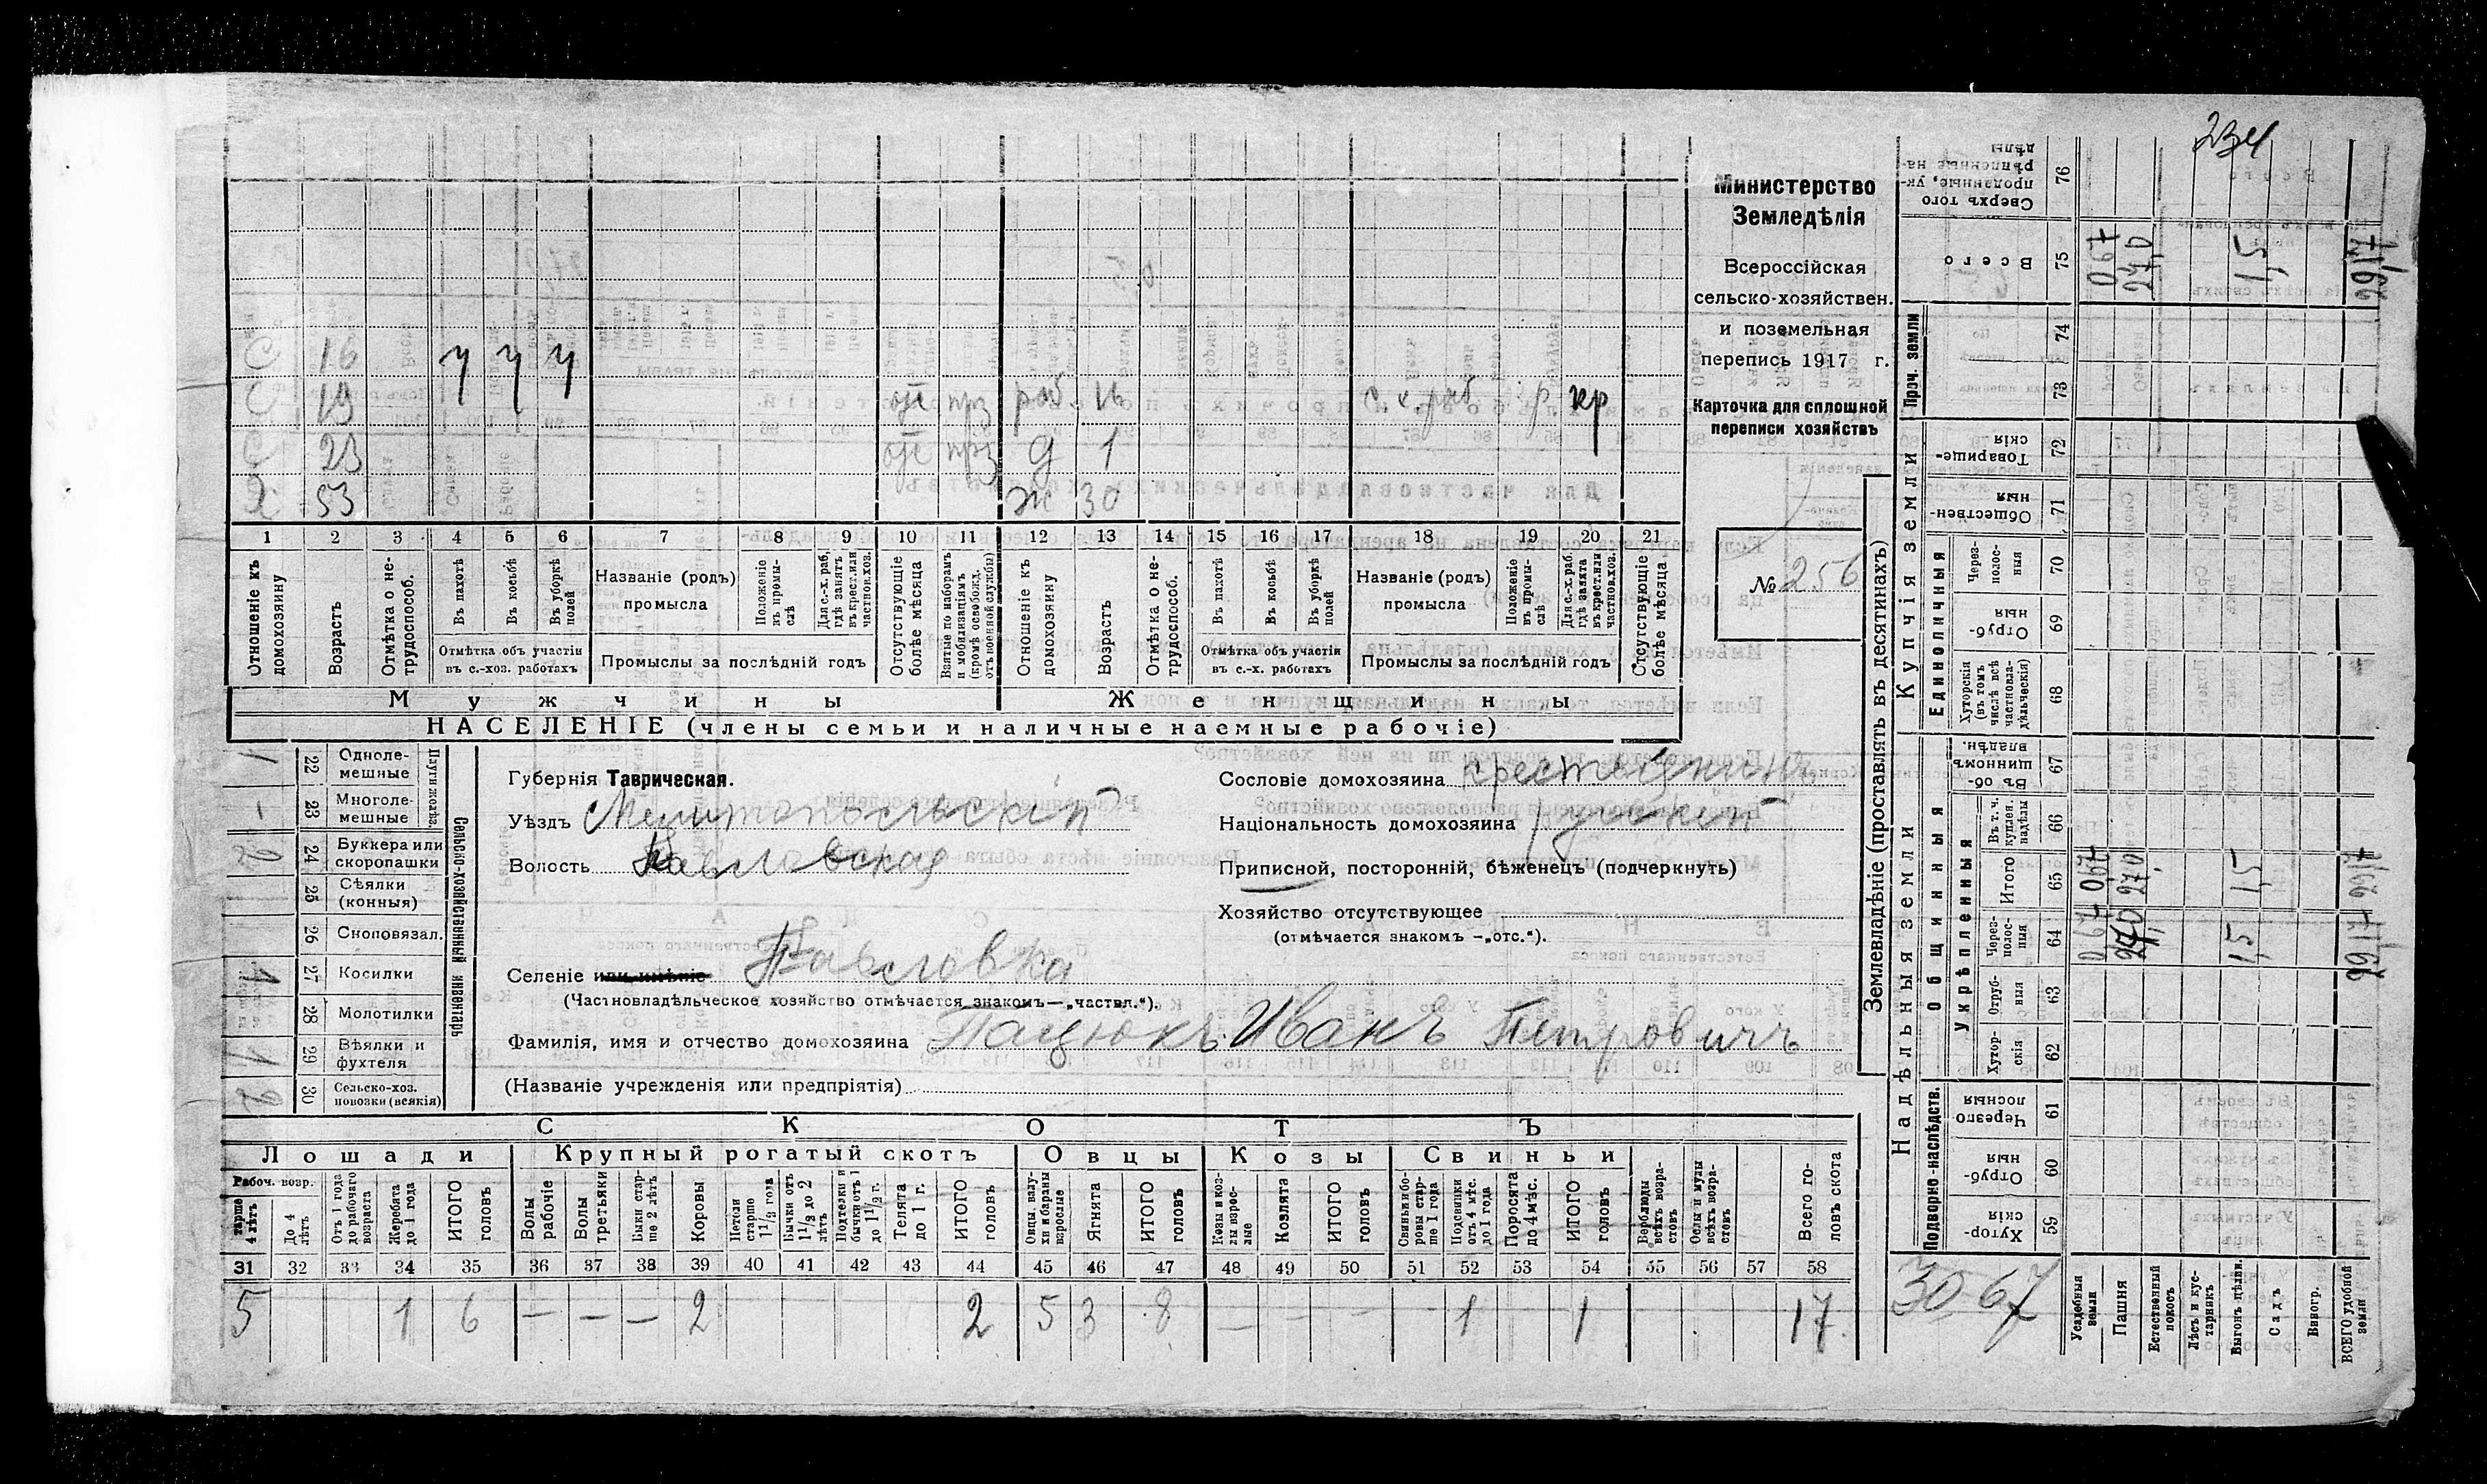 234
Министерство
Земледѣлія
Всероссійская
сельско-хозяйствен.
и поземельная
перепись 1917 г.
Карточка для сплошной
переписи хозяйствъ
№ 256
С 16 ч ч ч
С 19 от прз раб. с. х. раб р кр
С 23 от прз д 1
Х 53 ж 30
1 2 3 4 5 6 7 8 9 10 11 12 13 14 15 16 17 18 19 20 21
Отношеніе къ домохозяину
Возрастъ
Отмѣтка о нетрудоспособ.
Въ пахотѣ
Въ косьбѣ
Въ уборкѣ полей
Отмѣтка объ участіи въ с.-хоз. работахъ
Названіе (родъ) промысла
Положеніе въ промыслѣ
Для с.-х. раб. гдѣ занятъ въ крест. или частнов. хоз.
Промыслы за послѣдній годъ
Отсутствующіе болѣе мѣсяца
Взятые по наборамъ и мобилизаціямъ (кромѣ освобожд. отъ военной службы)
Отношеніе къ домохозяину
Возрастъ
Отмѣтка о нетрудоспособ.
Въ пахотѣ
Въ косьбѣ
Въ уборкѣ полей
Отмѣтка объ участіи въ с.-х. работахъ
Названіе (родъ) промысла
Положеніе въ промыслѣ
Для с.-х. раб. гдѣ занята въ крест. или частнов. хоз.
Промыслы за послѣдній годъ
Отсутствующіе болѣе мѣсяца
Мужчины Женщины
НАСЕЛЕНІЕ (члены семьи и наличные наемные рабочіе)
Сельско-хозяйственный инвентарь
Плуги желѣз.
22 Одноле-мешные 1
23 Многоле-мешные -
24 Буккера или скоропашки 2
25 Сѣялки (конныя)
26 Сноповязал.
27 Косилки 1
28 Молотилки
29 Вѣялки и фухтеля 1
30 Сельско-хоз. повозки (всякія) 2
Губернія Таврическая.
Уѣздъ Мелитопольскій
Волость Павловская
Селеніе или имѣніе Павловка
(Частновладѣльческое хозяйство отмѣчается знакомъ—„частвл.“).
Фамилія, имя и отчество домохозяина Пацюкъ Иванъ Петровичъ
(Названіе учрежденія или предпріятія)
Сословіе домохозяина крестьянинъ
Національность домохозяина русскій
Приписной, посторонній, бѣженецъ (подчеркнуть)
Хозяйство отсутствующее
(отмѣчается знакомъ -„отс.“).
СКОТЪ
Лошади Крупный рогатый скотъ Овцы Козы Свиньи
Рабоч. возр.
До 4 лѣтъ
Отъ 1 года до рабочаго возраста
Жеребята до 1 года
ИТОГО головъ
Волы рабочіе
Волы третьяки
Быки старше 2 лѣтъ
Коровы
Нетели старше 1½ года
Бычки отъ 1½ до 2 лѣтъ
Подтелки и бычки отъ 1 до 1½ г.
Телята до 1 г.
ИТОГО головъ
Овцы, валухи и бараны взрослые
Ягнята
ИТОГО головъ
Козы и козлы взрослые
Козлята
ИТОГО головъ
Свиньи и боровы старше 1 года
Подсвинки отъ 4 мѣс. до 1 года
Поросята до 4 мѣс.
ИТОГО головъ
Верблюды всѣхъ возрастовъ
Ослы и мулы всѣхъ возрастовъ
Всего головъ скота
31 32 33 34 35 36 37 38 39 40 41 42 43 44 45 46 47 48 49 50 51 52 53 54 55 56 57 58
5 1 6 — — — 2 2 5 3 8 — - - - 1 1 17
Землевладѣніе (проставлять въ десятинахъ)
Надѣльныя земли
Купчія земли
Проч. земли
Подворно-наслѣдств.
Общинныя
Укрѣпленныя
Единоличныя
59 Хуторскія
60 Отрубныя
61 Черезполосныя
62 Хуторскія
63 Отрубныя
64 Черезполосныя 0,67 27,0 1,5 29,17
65 Итого 0,67 27,0 1,5 29,17
66 Въ т. ч. куплен. надѣлы
67 Въ общинномъ владѣн.
68 Хуторскія (въ томъ числѣ всѣ частновладѣльческія)
69 Отрубныя
70 Черезполосныя
71 Общественныя
72 Товарищескія
73
74
75 Всего 0,67 27,0 1,5 29,17
76 Сверхъ того проданные, укрѣпленные надѣлы
30 67
Усадебныя земли
Пашня
Естественный покосъ
Лѣсъ и кустарникъ
Выгонъ цѣлин.
Садъ
Виногр.
ВСЕГО удобной земли